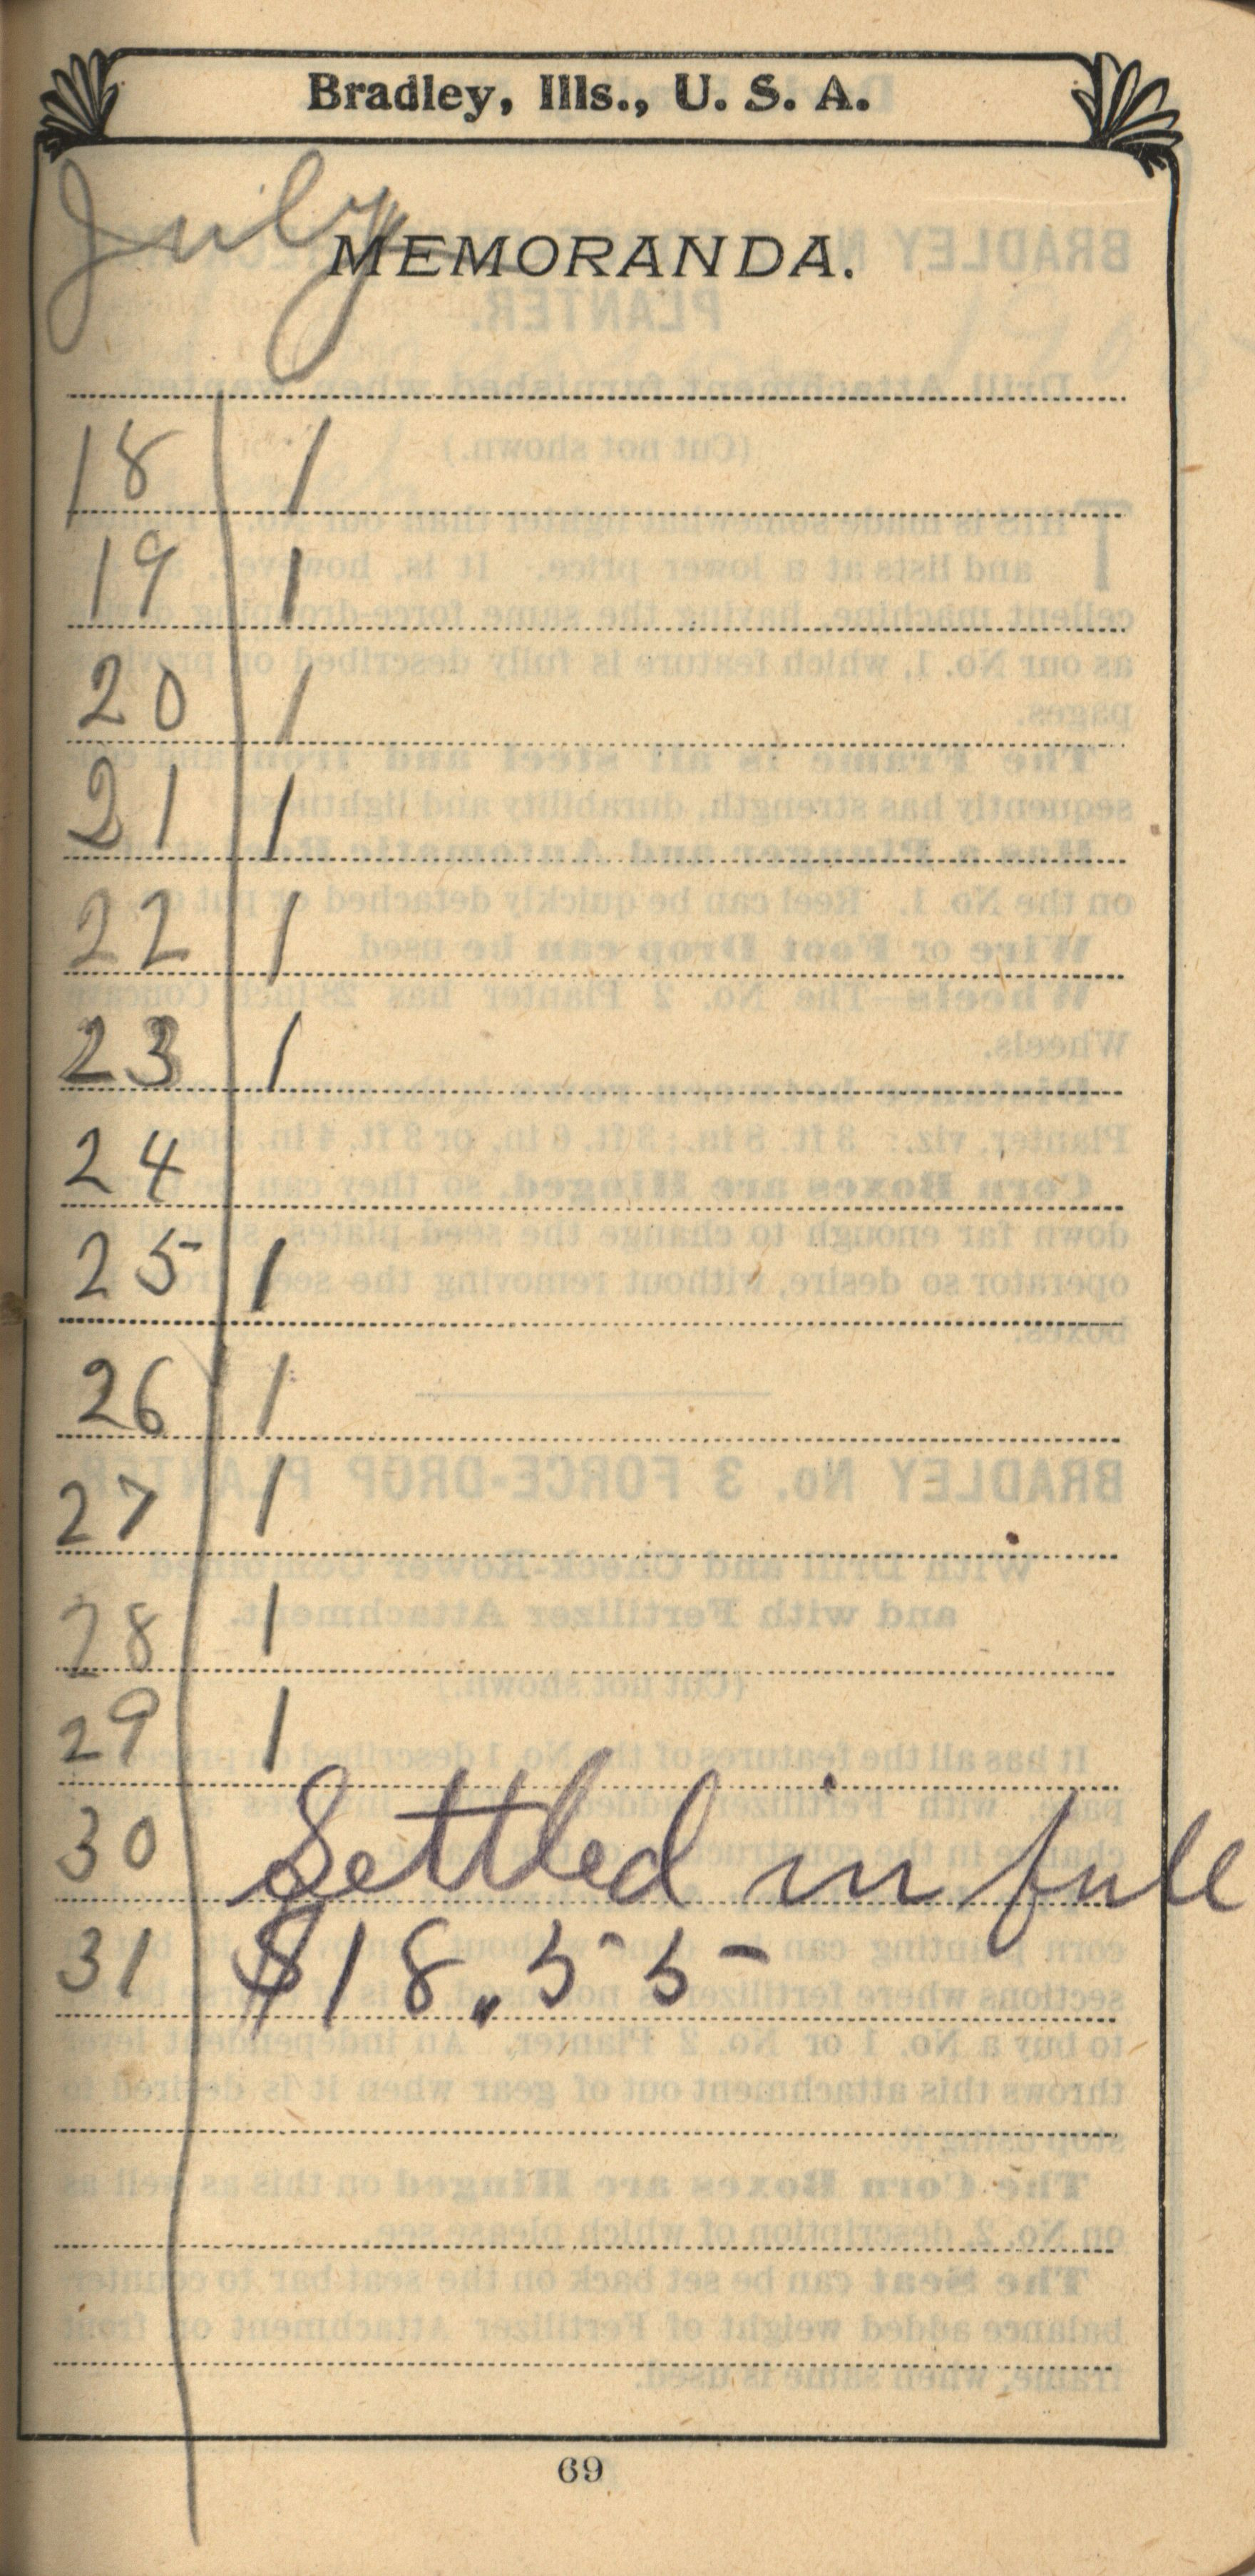 Bradley, Ills., U. S. A.
July
MEMORANDA.
18 1
19 1
20 1
21 1
22 1
23 1
24
25 1
26 1
27 1
28 1
29 1
30 Settled in full
31 $18.55
69